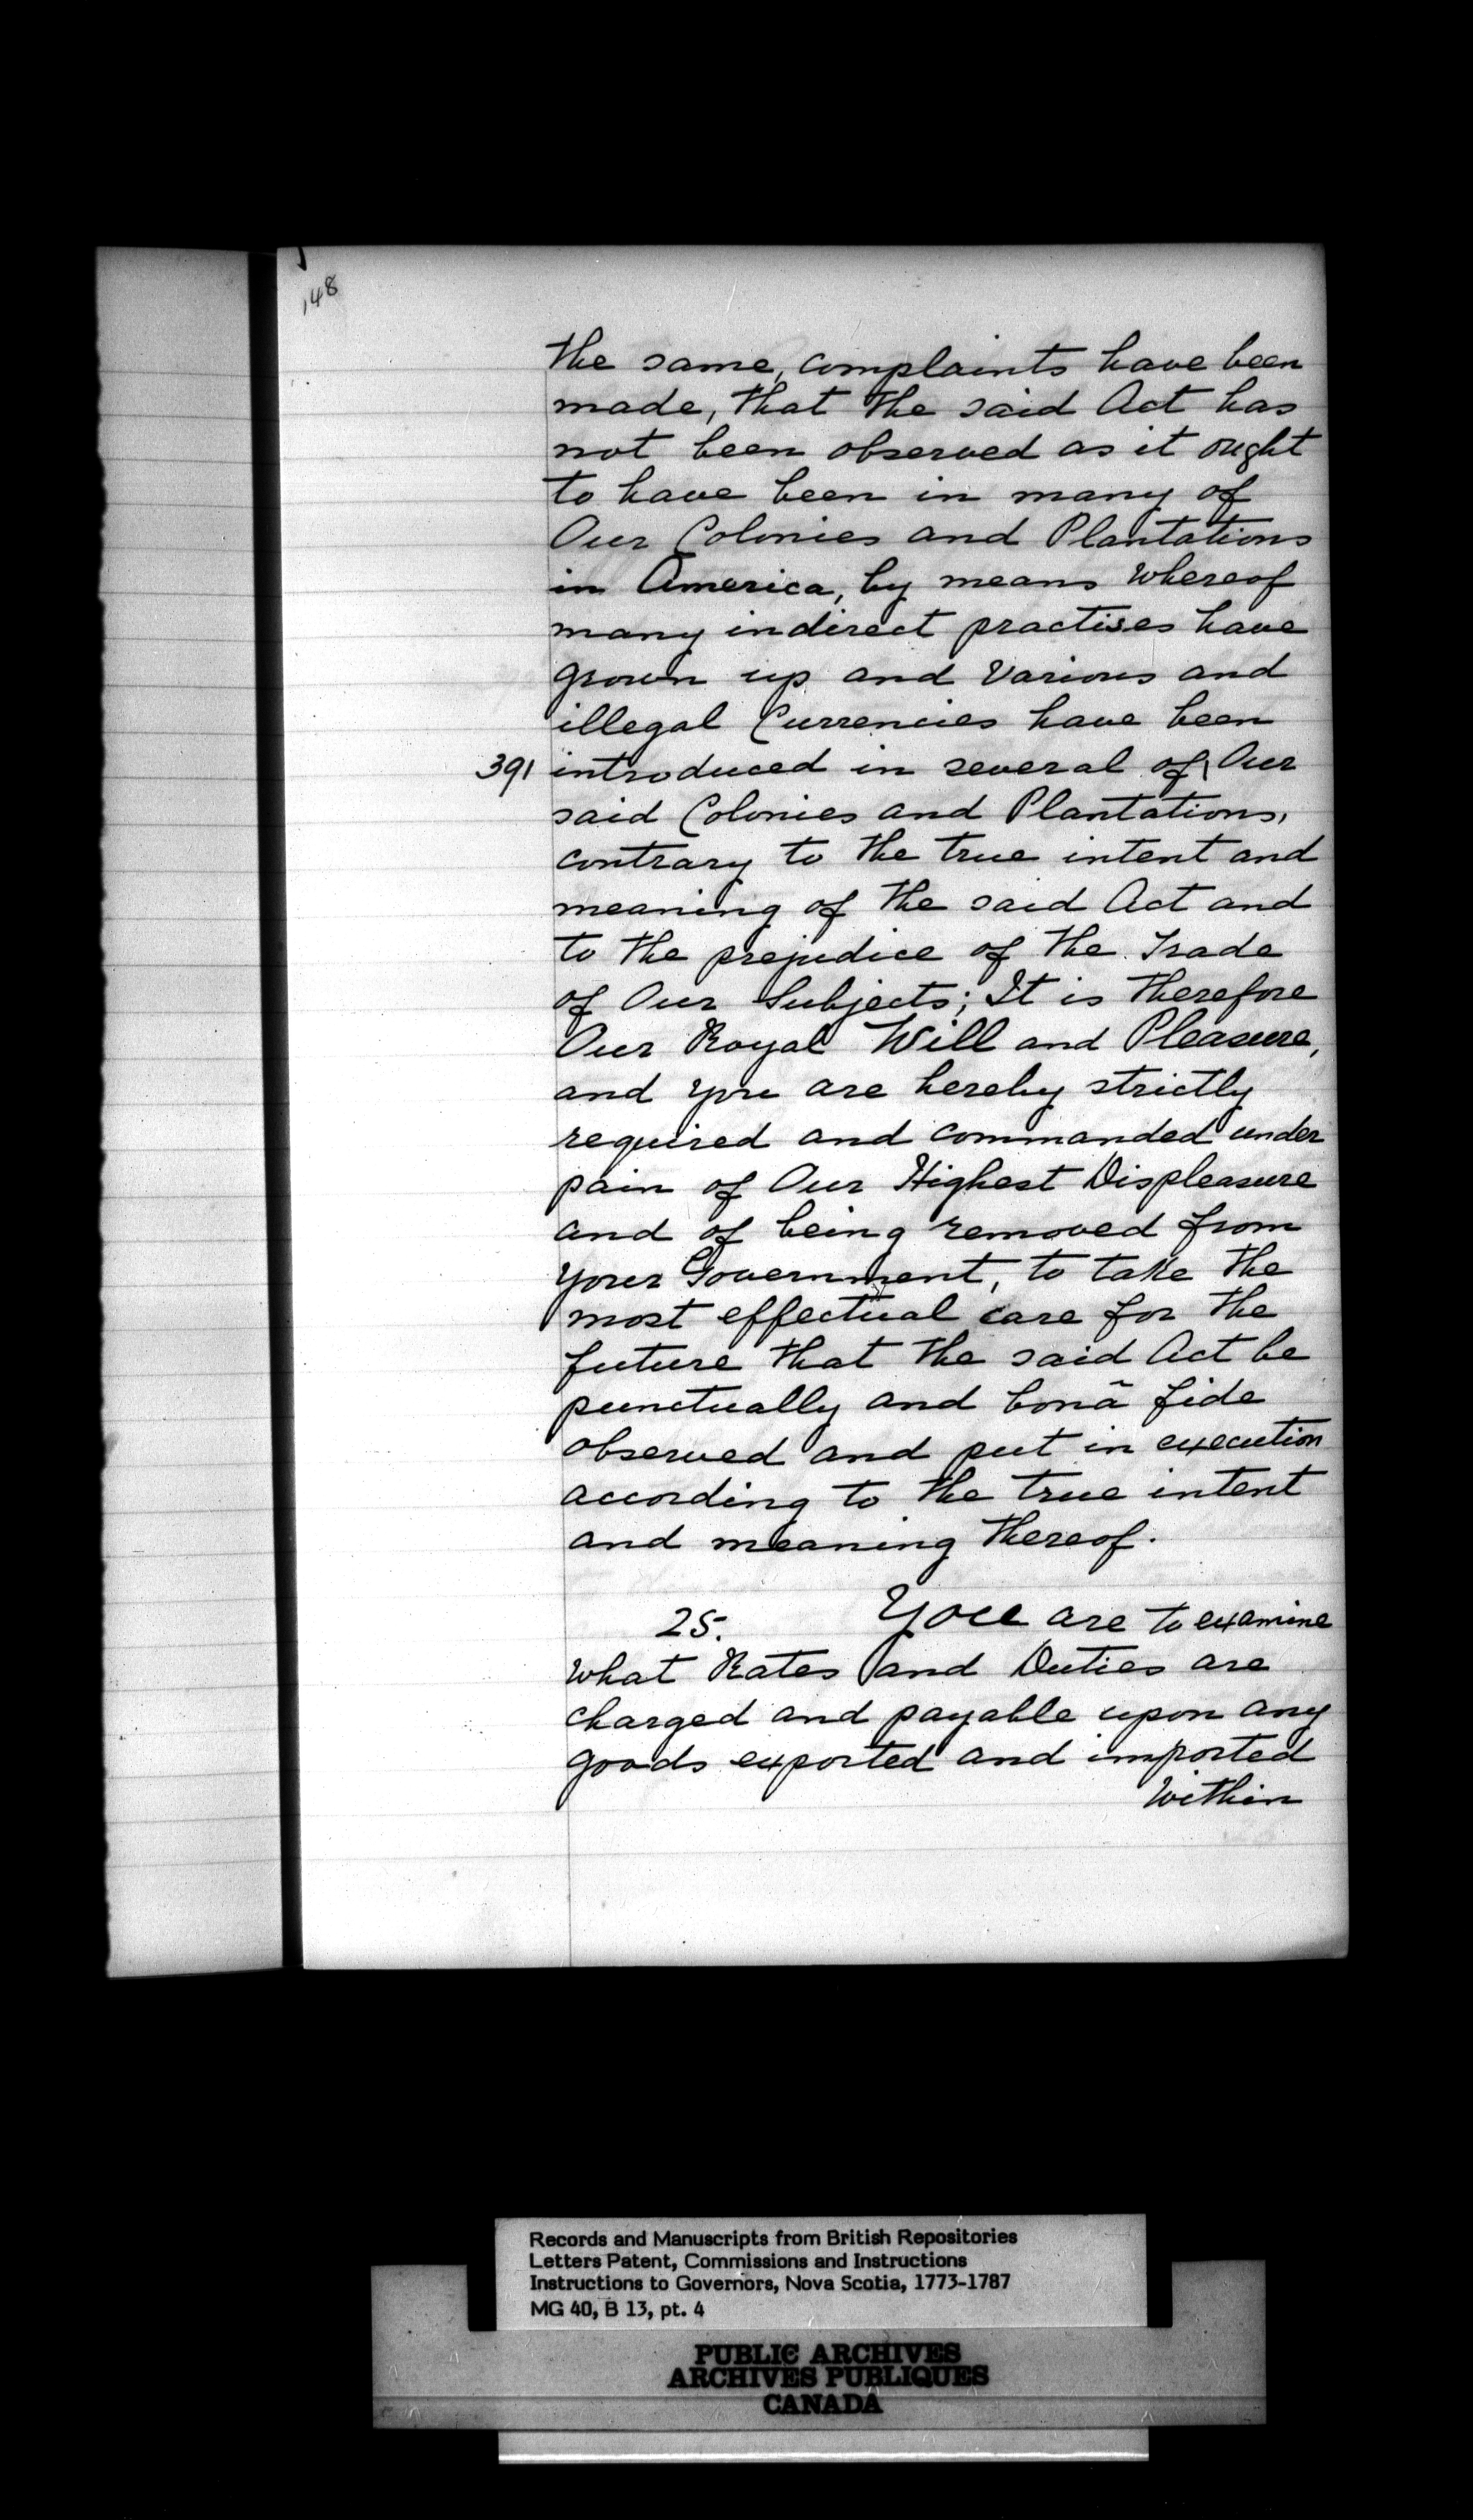 148
the same, complaints have been
made, that the said Act has
not been observed as it ought
to have been in many of
Our Colonies and Plantations
in America, by means whereof
many indirect practises have
grown up and Various and
illegal Currencies have been
391 introduced in several of\ Our
said Colonies and Plantations,
contrary to the true intent and
meaning of the said Act and
to the prejudice of the Trade
of Our Subjects; It is therefore
Our Royal Will and Pleasure,
and you are hereby strictly
required and commanded under
pain of Our Highest Displeasure
and of being removed from
your Government, to take the
most effectual care for the
future that the said Act be
punctually and bonã fide
observed and put in execution
according to the true intent
and meaning thereof.
25. You are to examine
what Rates and Duties are
charged and payable upon any
goods exported and imported
Within
Records and Manuscripts from British Repositories
Letters Patent, Commissions and Instructions
Instructions to Governors, Nova Scotia, 1773-1787
MG 40, B 13, pt. 4
PUBLIC ARCHIVES
ARCHIVES PUBLIQUES
CANADA